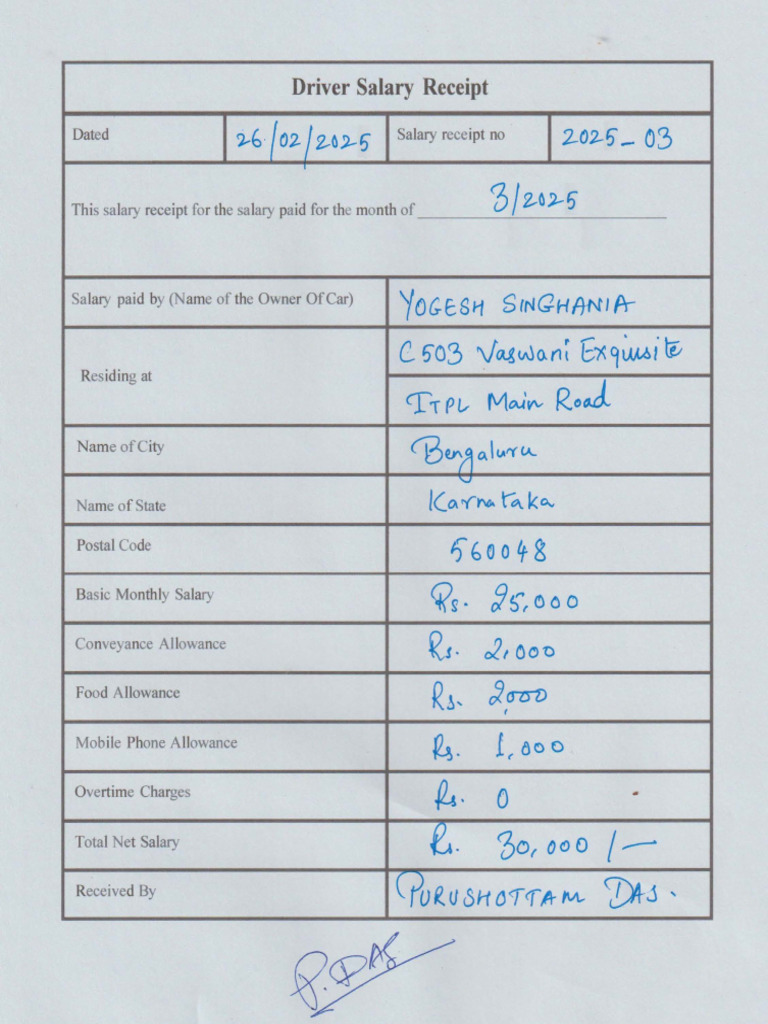 Driver Salary Receipt
Dated 26/02/2025 Salary receipt no 2025-03
This salary receipt for the salary paid for the month of 3/2025
Salary paid by (Name of the Owner Of Car) YOGESH SINGHANIA
Residing at C503 Vaswani Exquisite
ITPL Main Road
Name of City Bengaluru
Name of State Karnataka
Postal Code 560048
Basic Monthly Salary Rs. 25,000
Conveyance Allowance Rs. 2,000
Food Allowance Rs. 2,000
Mobile Phone Allowance Rs. 1,000
Overtime Charges Rs. 0
Total Net Salary Rs. 30,000/-
Received By PURUSHOTTAM DAS.
P. DAS